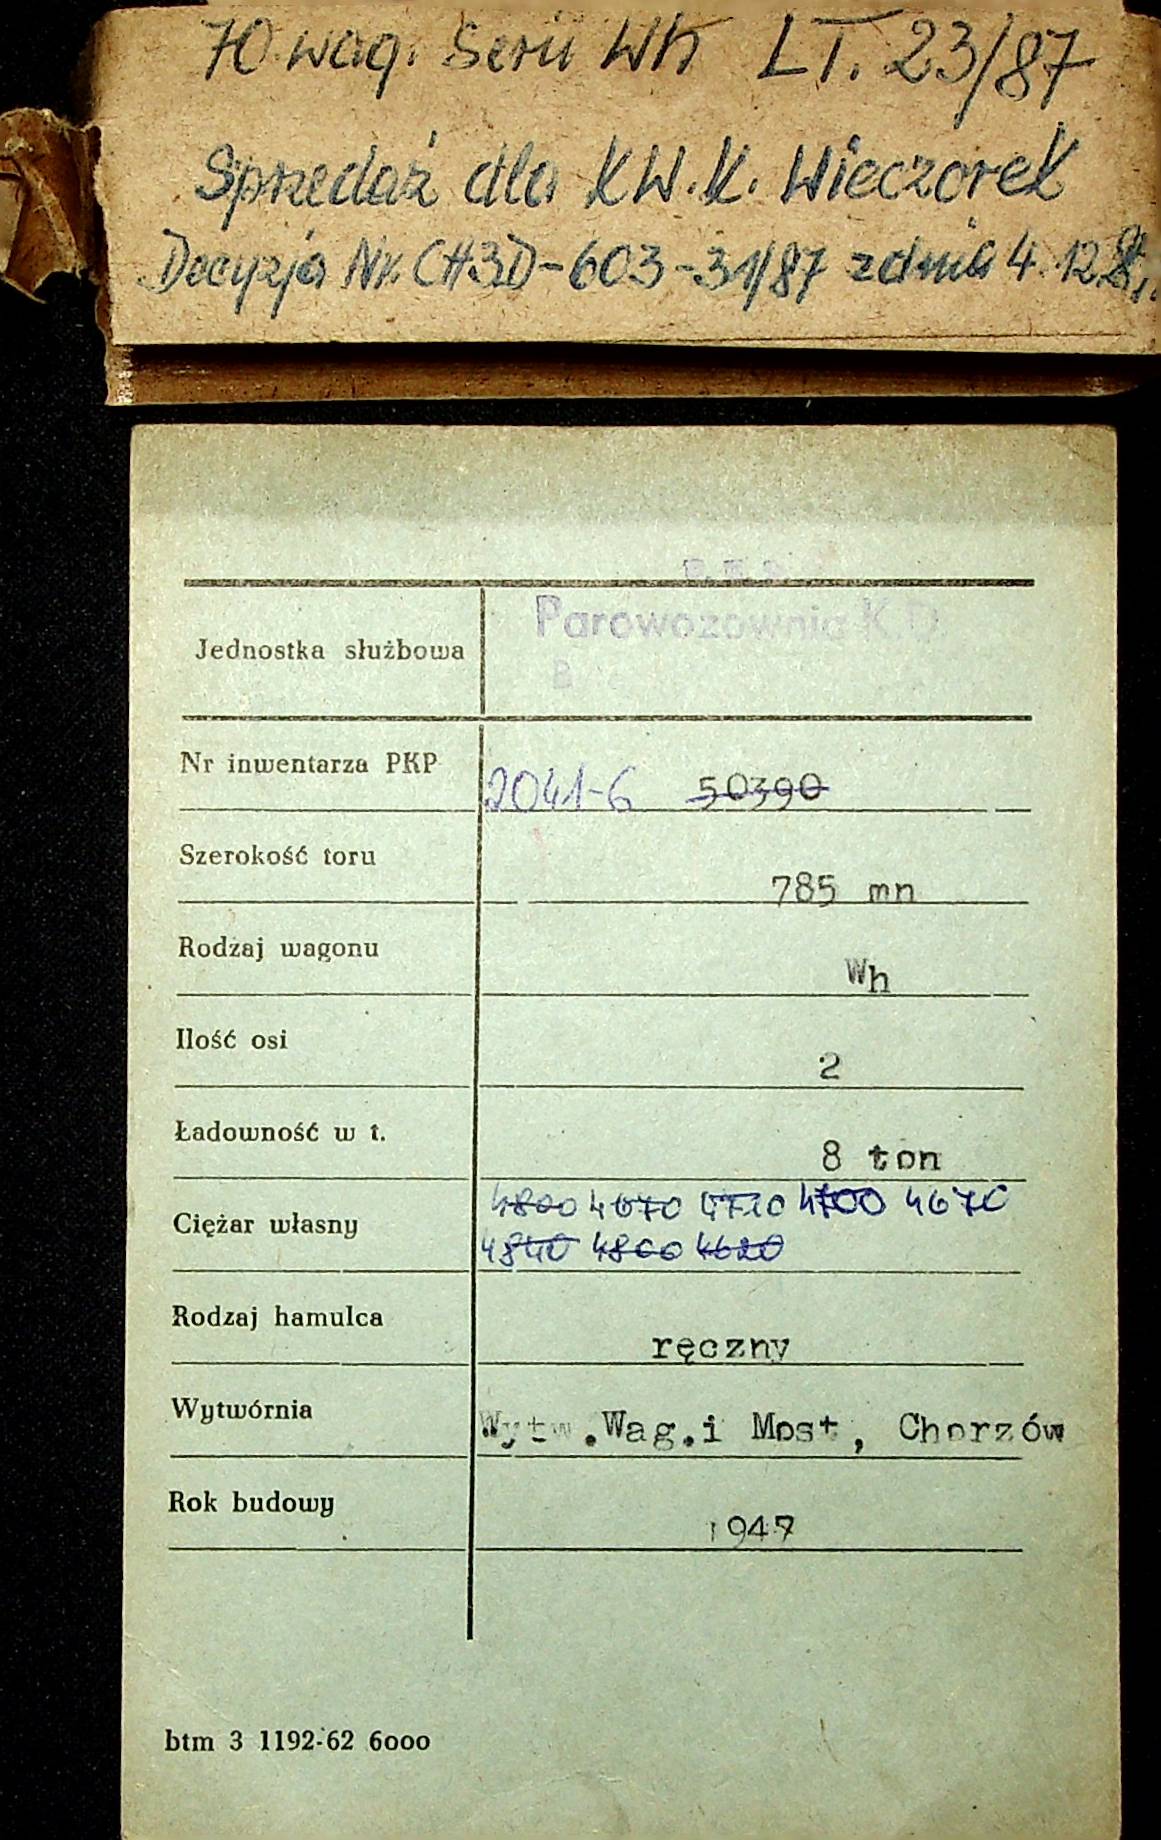 70 wag. Serii Wh LT. 23/87
Sprzedaż dla KW.K. Wieczorek
Decyzja Nr. CH3D-603-31/87 z dnia 4.12.
P. K. P.
Parowozownia K.D.
Jednostka służbowa
Nr inwentarza PKP 2041-6 50390
Szerokość toru 785 mn
Rodzaj wagonu Wh
Ilość osi 2
Ładowność w t. 8 ton
4800 4670 4710 4700 4670
Ciężar własny
4840 4800 4620
Rodzaj hamulca ręczny
Wytwórnia Wytw.Wag.i Most, Chorzów
Rok budowy 1947
btm 3 1192-62 6000